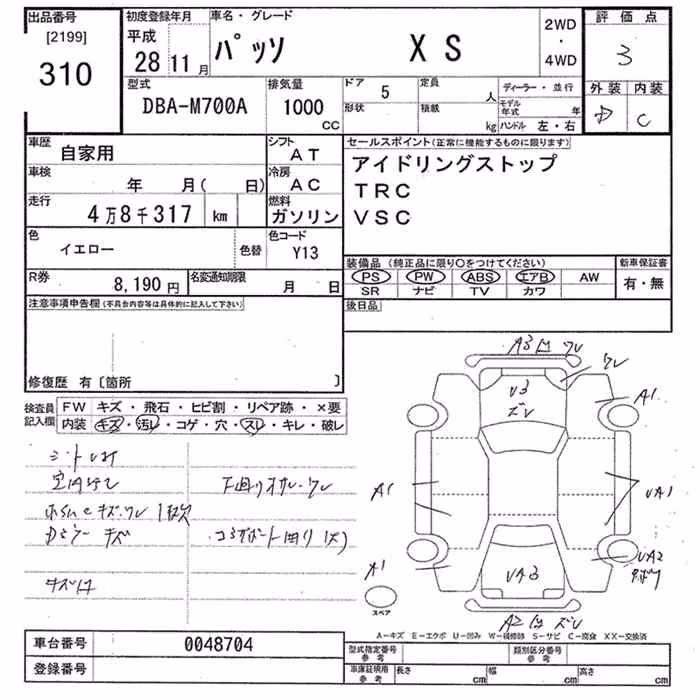 出品番号
[2199]
310
初度登録年月
平成
28 11 月
車名・グレード
パッソ X S
2WD
・
4WD
評価点
3
外装 内装
D C
型式
DBA-M700A
排気量
1000
CC
ドア 5
形状
定員 人
積載 kg
ディーラー・並行
モデル年式 年
ハンドル 左・右
車歴
自家用
シフト
AT
車検
年 月( 日)
冷房
AC
走行
4万8千317 km
燃料
ガソリン
色
イエロー
色替
色コード
Y13
R券
8,190 円
名変通知期限
月 日
セールスポイント(正常に機能するものに限ります)
アイドリングストップ
TRC
VSC
装備品 (純正品に限り○をつけてください)
PS PW ABS エアB AW
SR ナビ TV カワ
新車保証書
有・無
後日品
注意事項申告欄(不具合内容等は具体的に記入して下さい)
修復歴 有〔箇所 〕
検査員
記入欄
FW キズ・飛石・ヒビ割・リペア跡・×要
内装 キズ・汚レ・コゲ・穴・スレ・キレ・破レ
下回りオカレ・ワレ
A3 ワレ
ワレ
A1
V3
ズレ
A1
UA1
A1
UA2
UA3
A2 ズレ
スペア
A-キズ E-エクボ U-凹み W-補修跡 S-サビ C-腐食 XX-交換済
車台番号 0048704
登録番号
型式指定番号
参考
類別区分番号
参考
車庫証明用
参考
長さ cm 幅 cm 高さ cm